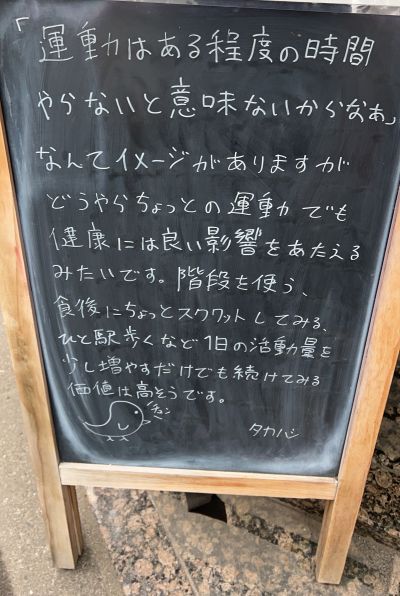 「運動はある程度の時間
やらないと意味ないからなあ」
なんてイメージがありますが
どうやらちょっとの運動でも
健康には良い影響をあたえる
みたいです。階段を使う、
食後にちょっとスクワットしてみる、
ひと駅歩くなど1日の活動量を
少し増やすだけでも続けてみる
価値は高そうです。
チュン
タカハシ